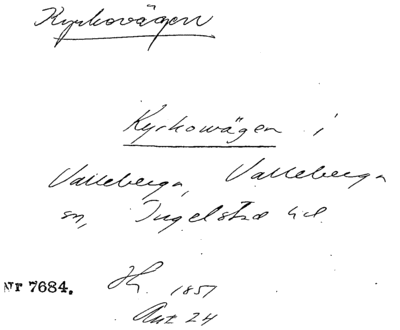 Kyrkovägen
Kyrkowägen i
Valleberga, Valleberga
sn, Ingelstad hd
Nr 7684. Jh. 1857
Akt 24